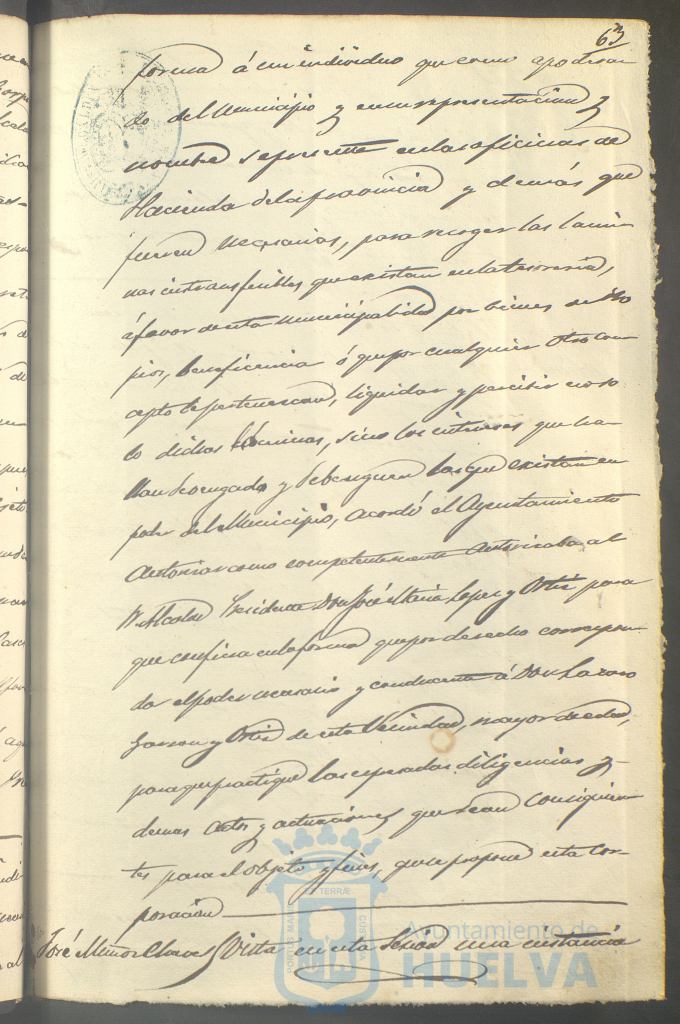 63
forma á un individuo que como apodera
do del Municipio y en su representacion y
nombre se presente en las oficinas de
Hacienda de la provincia y demás que
fueren necesarias, para recoger las lami
nas intransferibles que existan en la tesoreria,
á favor de esta municipalidad por bienes de Pro
pios, beneficencia ó que por cualquier otro con
cepto le pertenezcan, liquidar y percibir no so
lo dichas láminas, sino los intereses que ha
llan devengado y debenguen las que existan en
poder del Municipio, acordó el Ayuntamiento
autorizar como competentemente autorizaba al
Sr. Alcalde Presidente Don José Maria Lopez y Ortiz para
que confiera en la forma que por derecho correspon
da el poder necesario y conducente á Don Lazaro
Garzon y Ortiz de esta Vecindad, mayor de edad,
para que practique las espresadas diligencias y
demas actos y actuaciones que sean consiguien
tes para el objeto y fines, que se propone esta Cor-
poracion
José Muñoz Chaves Vista en esta Sesion una instancia
PORTUS MARIS
ET TERRÆ
CUSTODIA
Ayuntamiento de
HUELVA